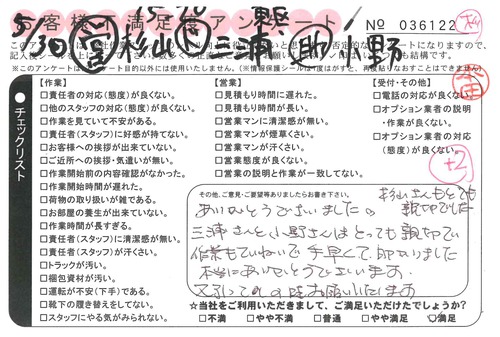 お客様不満足度アンケート
5/30 杉山 三浦 助 小野
15-20
No 036122
+2
チェックリスト
【作業】
□責任者の対応(態度)が良くない。
□他のスタッフの対応(態度)が良くない。
□作業を見ていて不安がある。
□責任者(スタッフ)に好感が持てない。
□お客様への挨拶が出来ていない。
□ご近所への挨拶・気遣いが無い。
□作業開始前の内容確認がなかった。
□作業開始時間が遅れた。
□荷物の取り扱いが雑である。
□お部屋の養生が出来ていない。
□作業時間が長すぎる。
□責任者(スタッフ)に清潔感が無い。
□責任者(スタッフ)が汗くさい。
□トラックが汚い。
□梱包資材が汚い。
□運転が不安(下手)である。
□靴下の履き替えをしてない。
□スタッフにやる気がみられない。
【営業】
□見積もり時間に遅れた。
□見積もり時間が長い。
□営業マンに清潔感が無い。
□営業マンが煙草くさい。
□営業マンが汗くさい。
□営業態度が良くない。
□営業の説明と作業が一致してない。
【受付・その他】
□電話の対応が良くない。
□オプション業者の説明
・作業が良くない。
□オプション業者の対応
(態度)が良くない。
その他、ご意見・ご要望等ありましたらお書き下さい。
杉山さんもとても
親切でした
ありがとうございました。
三浦さんと小野さんはとっても親切でい
作業もていねいで手早くて、助かりました
本当にありがとうございます。
又引っこしの時お願いいたします
☆当社をご利用いただきまして、ご満足いただけたでしょうか?
□不満 □やや不満 □普通 □やや満足 ☑満足